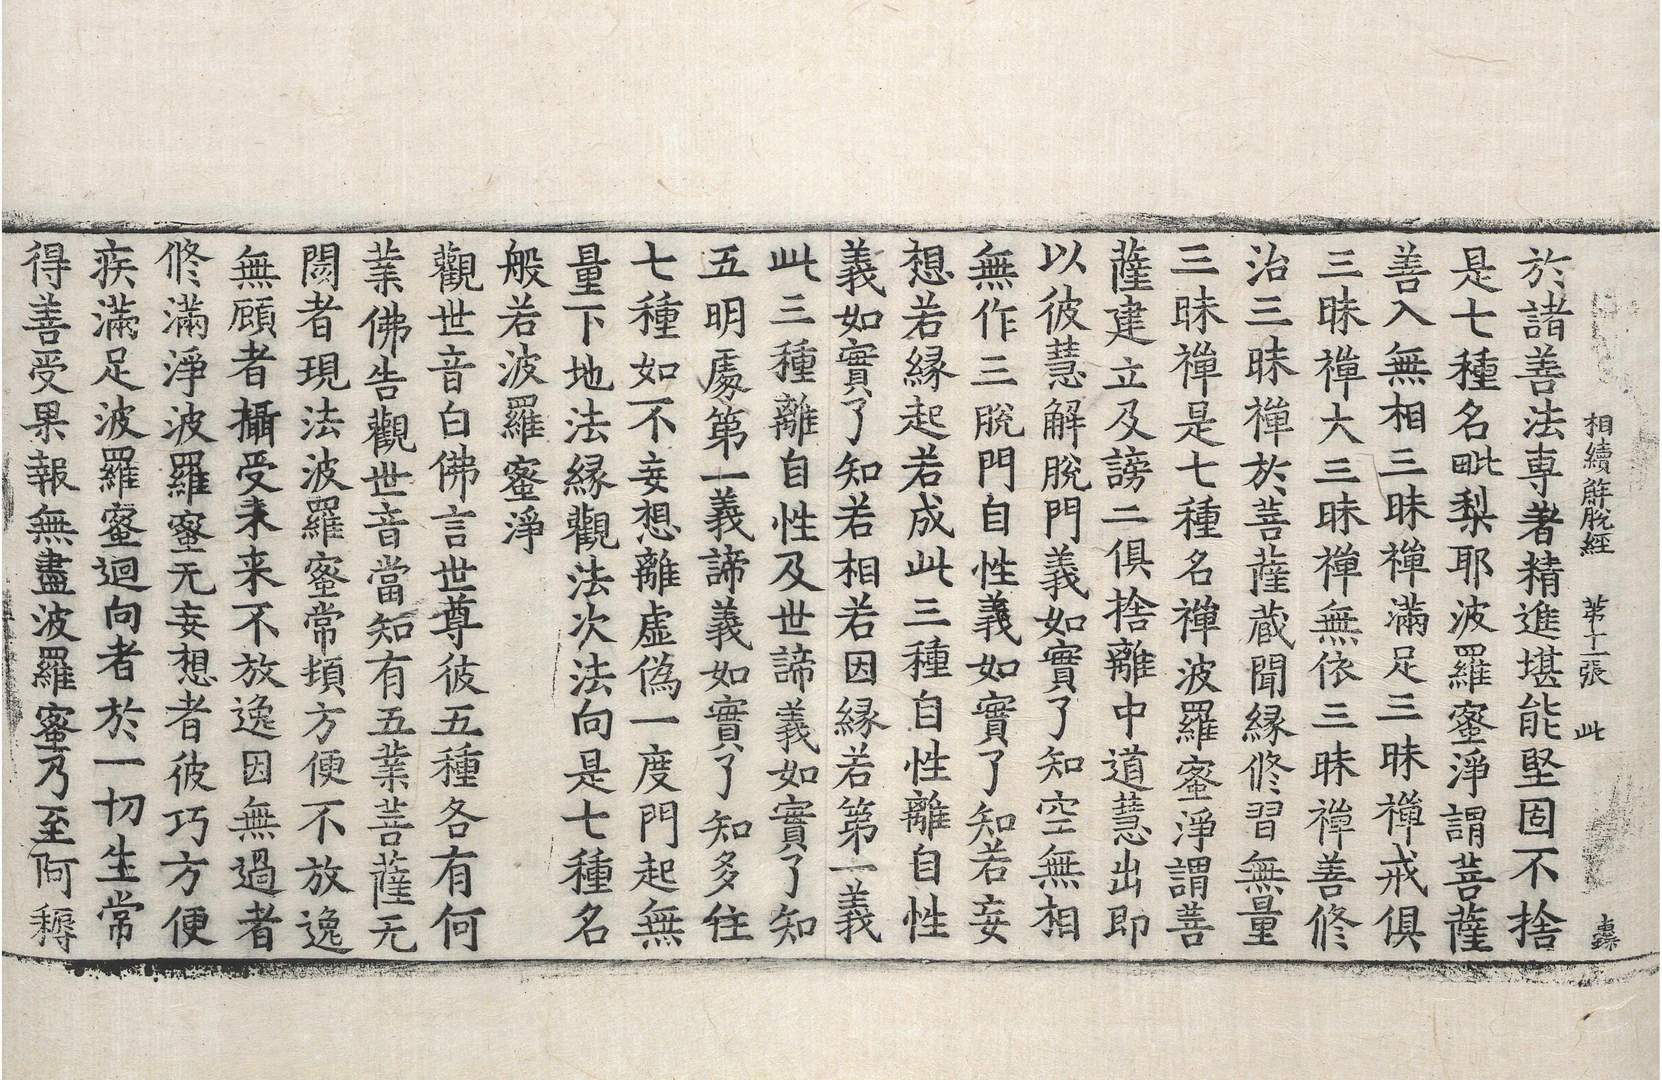 相續解脫經 第十二張 此
於諸善法専著精進堪能堅固不捨
是七種名毗梨耶波羅蜜淨謂菩薩
善入無相三昧禪滿足三昧禪戒俱
三昧禪大三昧禪無依三昧禪善修
治三昧禪於菩薩藏聞縁修習無量
三昧禪是七種名禪波羅蜜淨謂菩
薩建立及謗二俱捨離中道慧出即
以彼慧解脫門義如實了知空無相
無作三脫門自性義如實了知若妄
想若縁起若成此三種自性離自性
義如實了知若相若因縁若第一義
此三種離自性及世諦義如實了知
五明處第一義諦義如實了知多住
七種如不妄想離虛偽一度門起無
量下地法縁觀法次法向是七種名
般若波羅蜜淨
觀世音白佛言世尊彼五種各有何
業佛告觀世音當知有五業菩薩无
閡者現法波羅蜜常頍方便不放逸
無顧者攝受未来不放逸因無過者
修滿淨波羅蜜无妄想者彼巧方便
疾滿足波羅蜜迴向者於一切生常
得善受果報無盡波羅蜜乃至阿耨